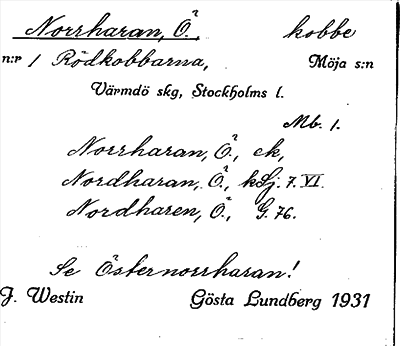 Norrharan, Ö., kobbe
n:r 1 Rödkobbarna, Möja s:n
Värmdö skg, Stockholms l.
Mb. 1.
Norrharan, Ö., ek,
Nordharan, Ö., kSj. 7. VI.
Nordharen, Ö., G. 76.
Se Östernorrharan!
J. Westin Gösta Lundberg 1931